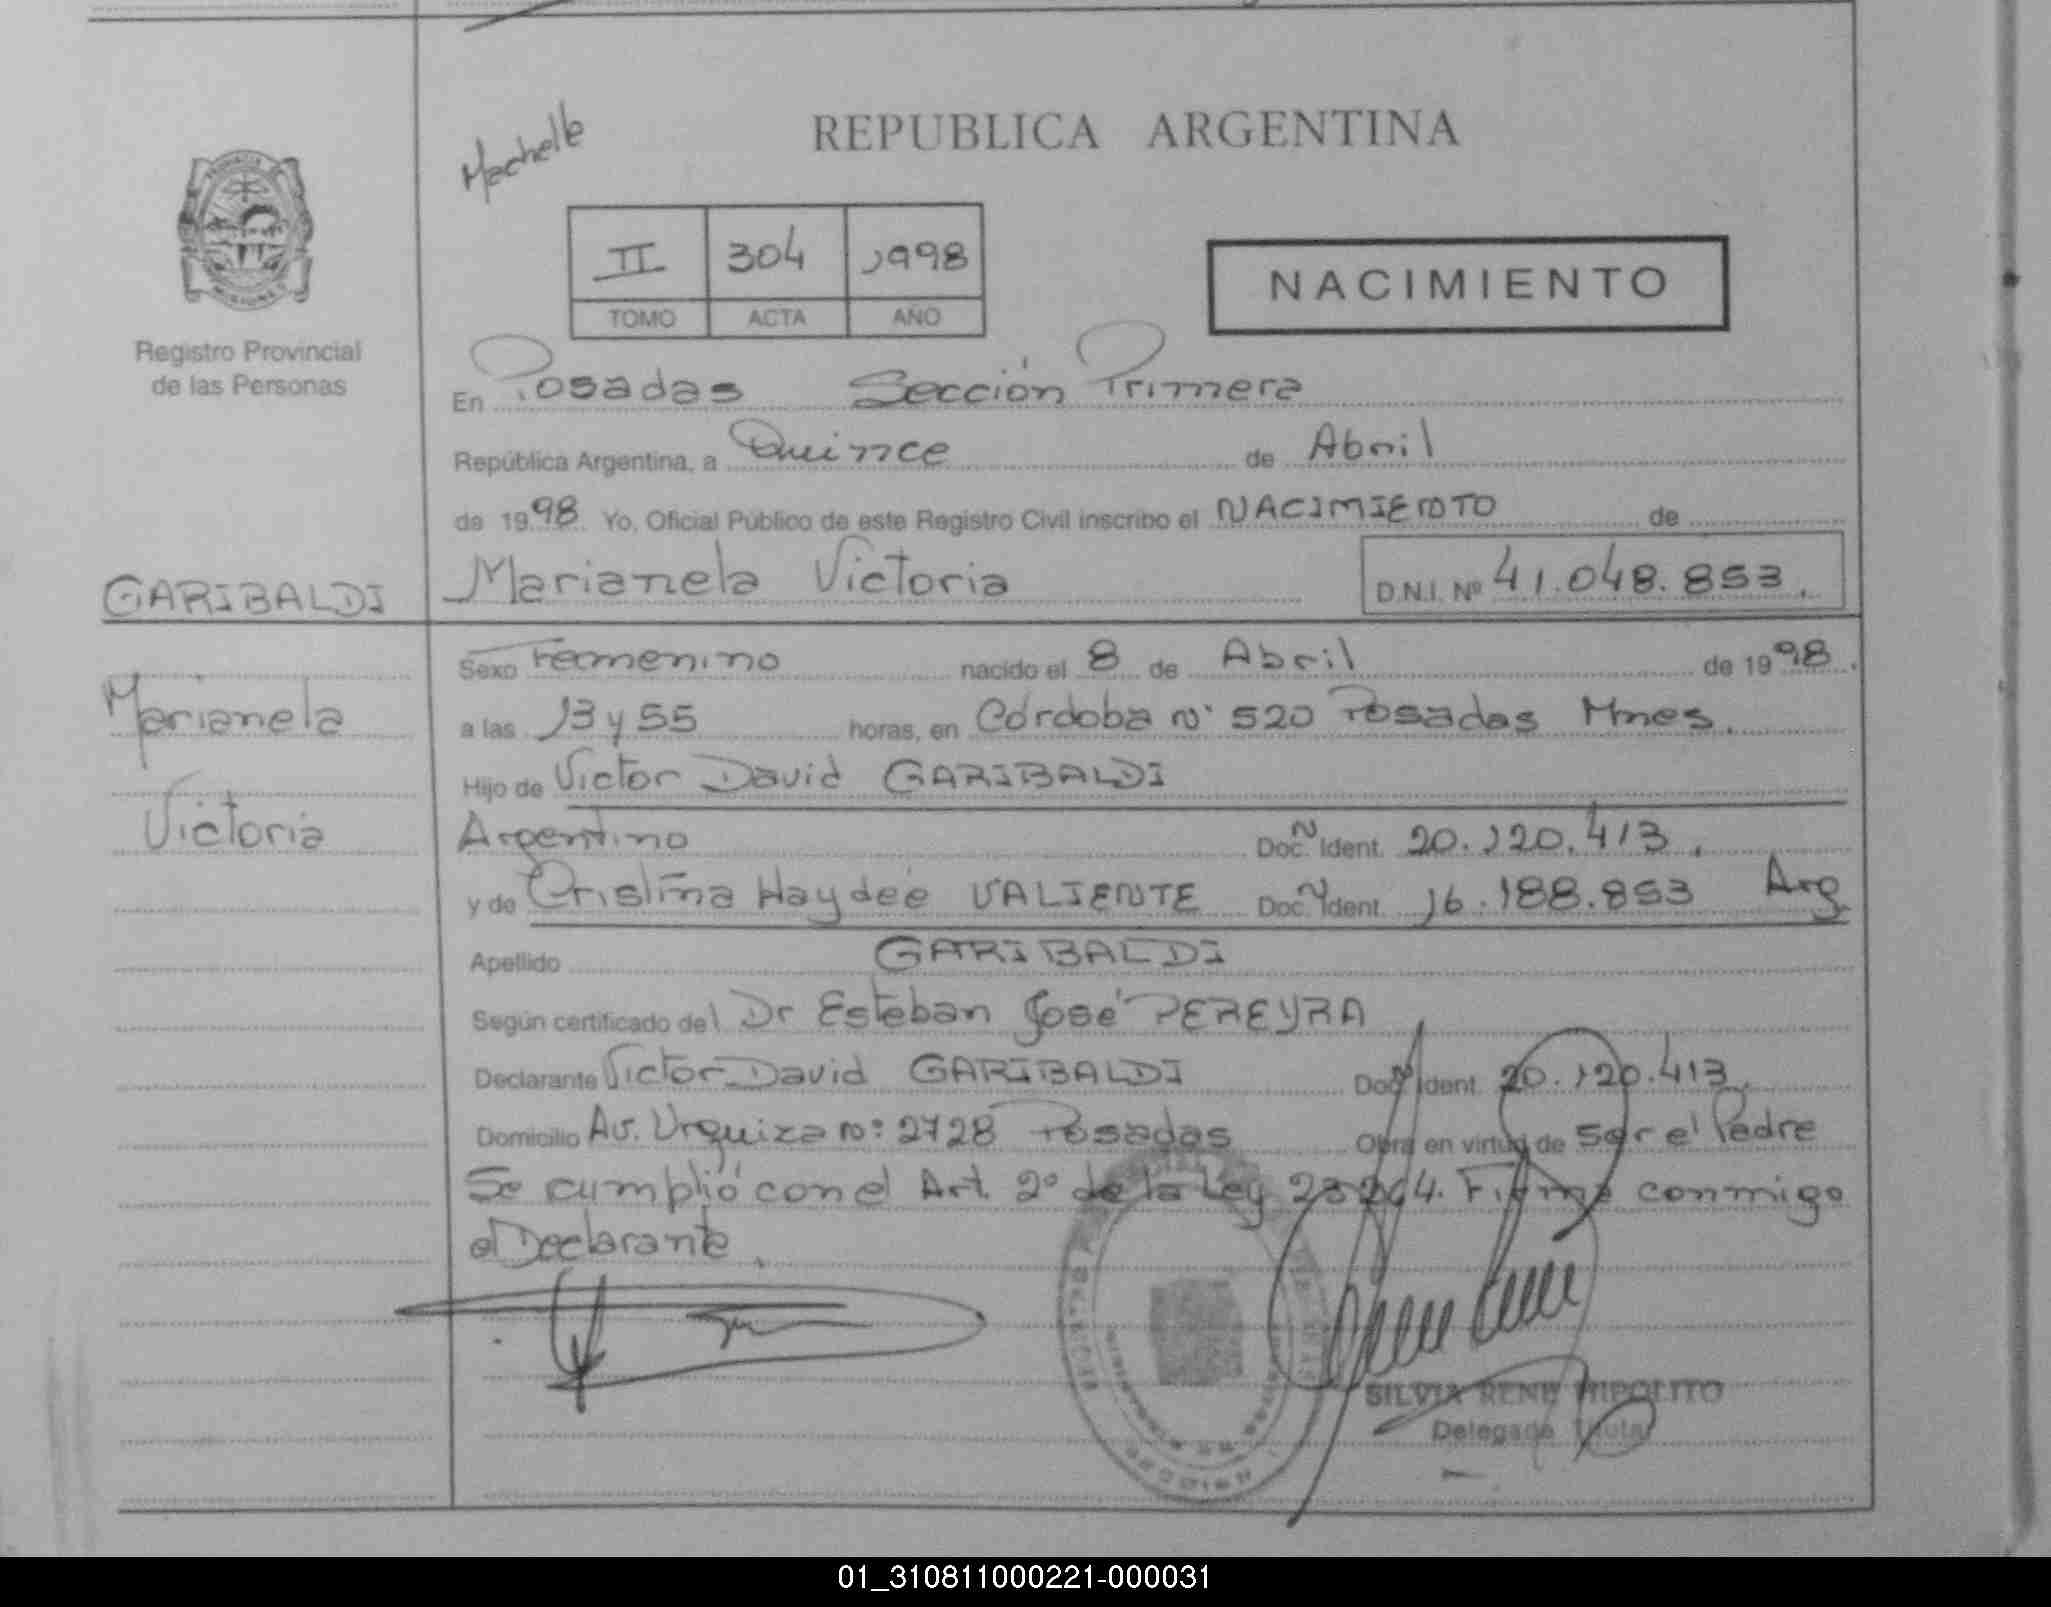 Machelle
REPUBLICA ARGENTINA
II 304 1998
TOMO ACTA AÑO
NACIMIENTO
Registro Provincial
de las Personas
En Posadas Sección Primera
República Argentina, a Quince de Abril
de 1998 Yo, Oficial Público de este Registro Civil inscribo el NACIMIENTO de
GARIBALDI Marianela Victoria D.N.I. Nº 41.048.853.
Marianela
Victoria
Sexo Femenino nacido el 8 de Abril de 1998.
a las 13 y 55 horas, en Córdoba Nº 520 Posadas Mnes.
Hijo de Victor David GARIBALDI
Argentino Doc. N Ident. 20.120.413.
y de Cristina Haydeé VALIENTE Doc. N Ident. 16.188.853 Arg
Apellido GARIBALDI
Según certificado del Dr Esteban José PEREYRA
Declarante Victor David GARIBALDI Doc. N Ident. 20.120.413.
Domicilio Av. Urquiza Nº: 2728 Posadas Obra en virtud de ser el Padre
Se cumplió con el Art. 2º de la Ley 23264. Firma conmigo
el Declarante.
SILVIA RENE HIPOLITO
Delegada Titular
01_310811000221-000031